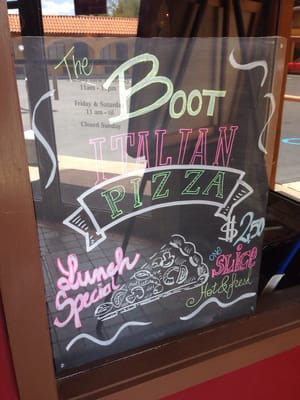 The
Boot
11am - 9pm
Friday & Saturday
11 am - 10
Closed Sunday
ITALIAN
PIZZA
Lunch
Special
$2.50
ONE
SLICE
Hot & fresh